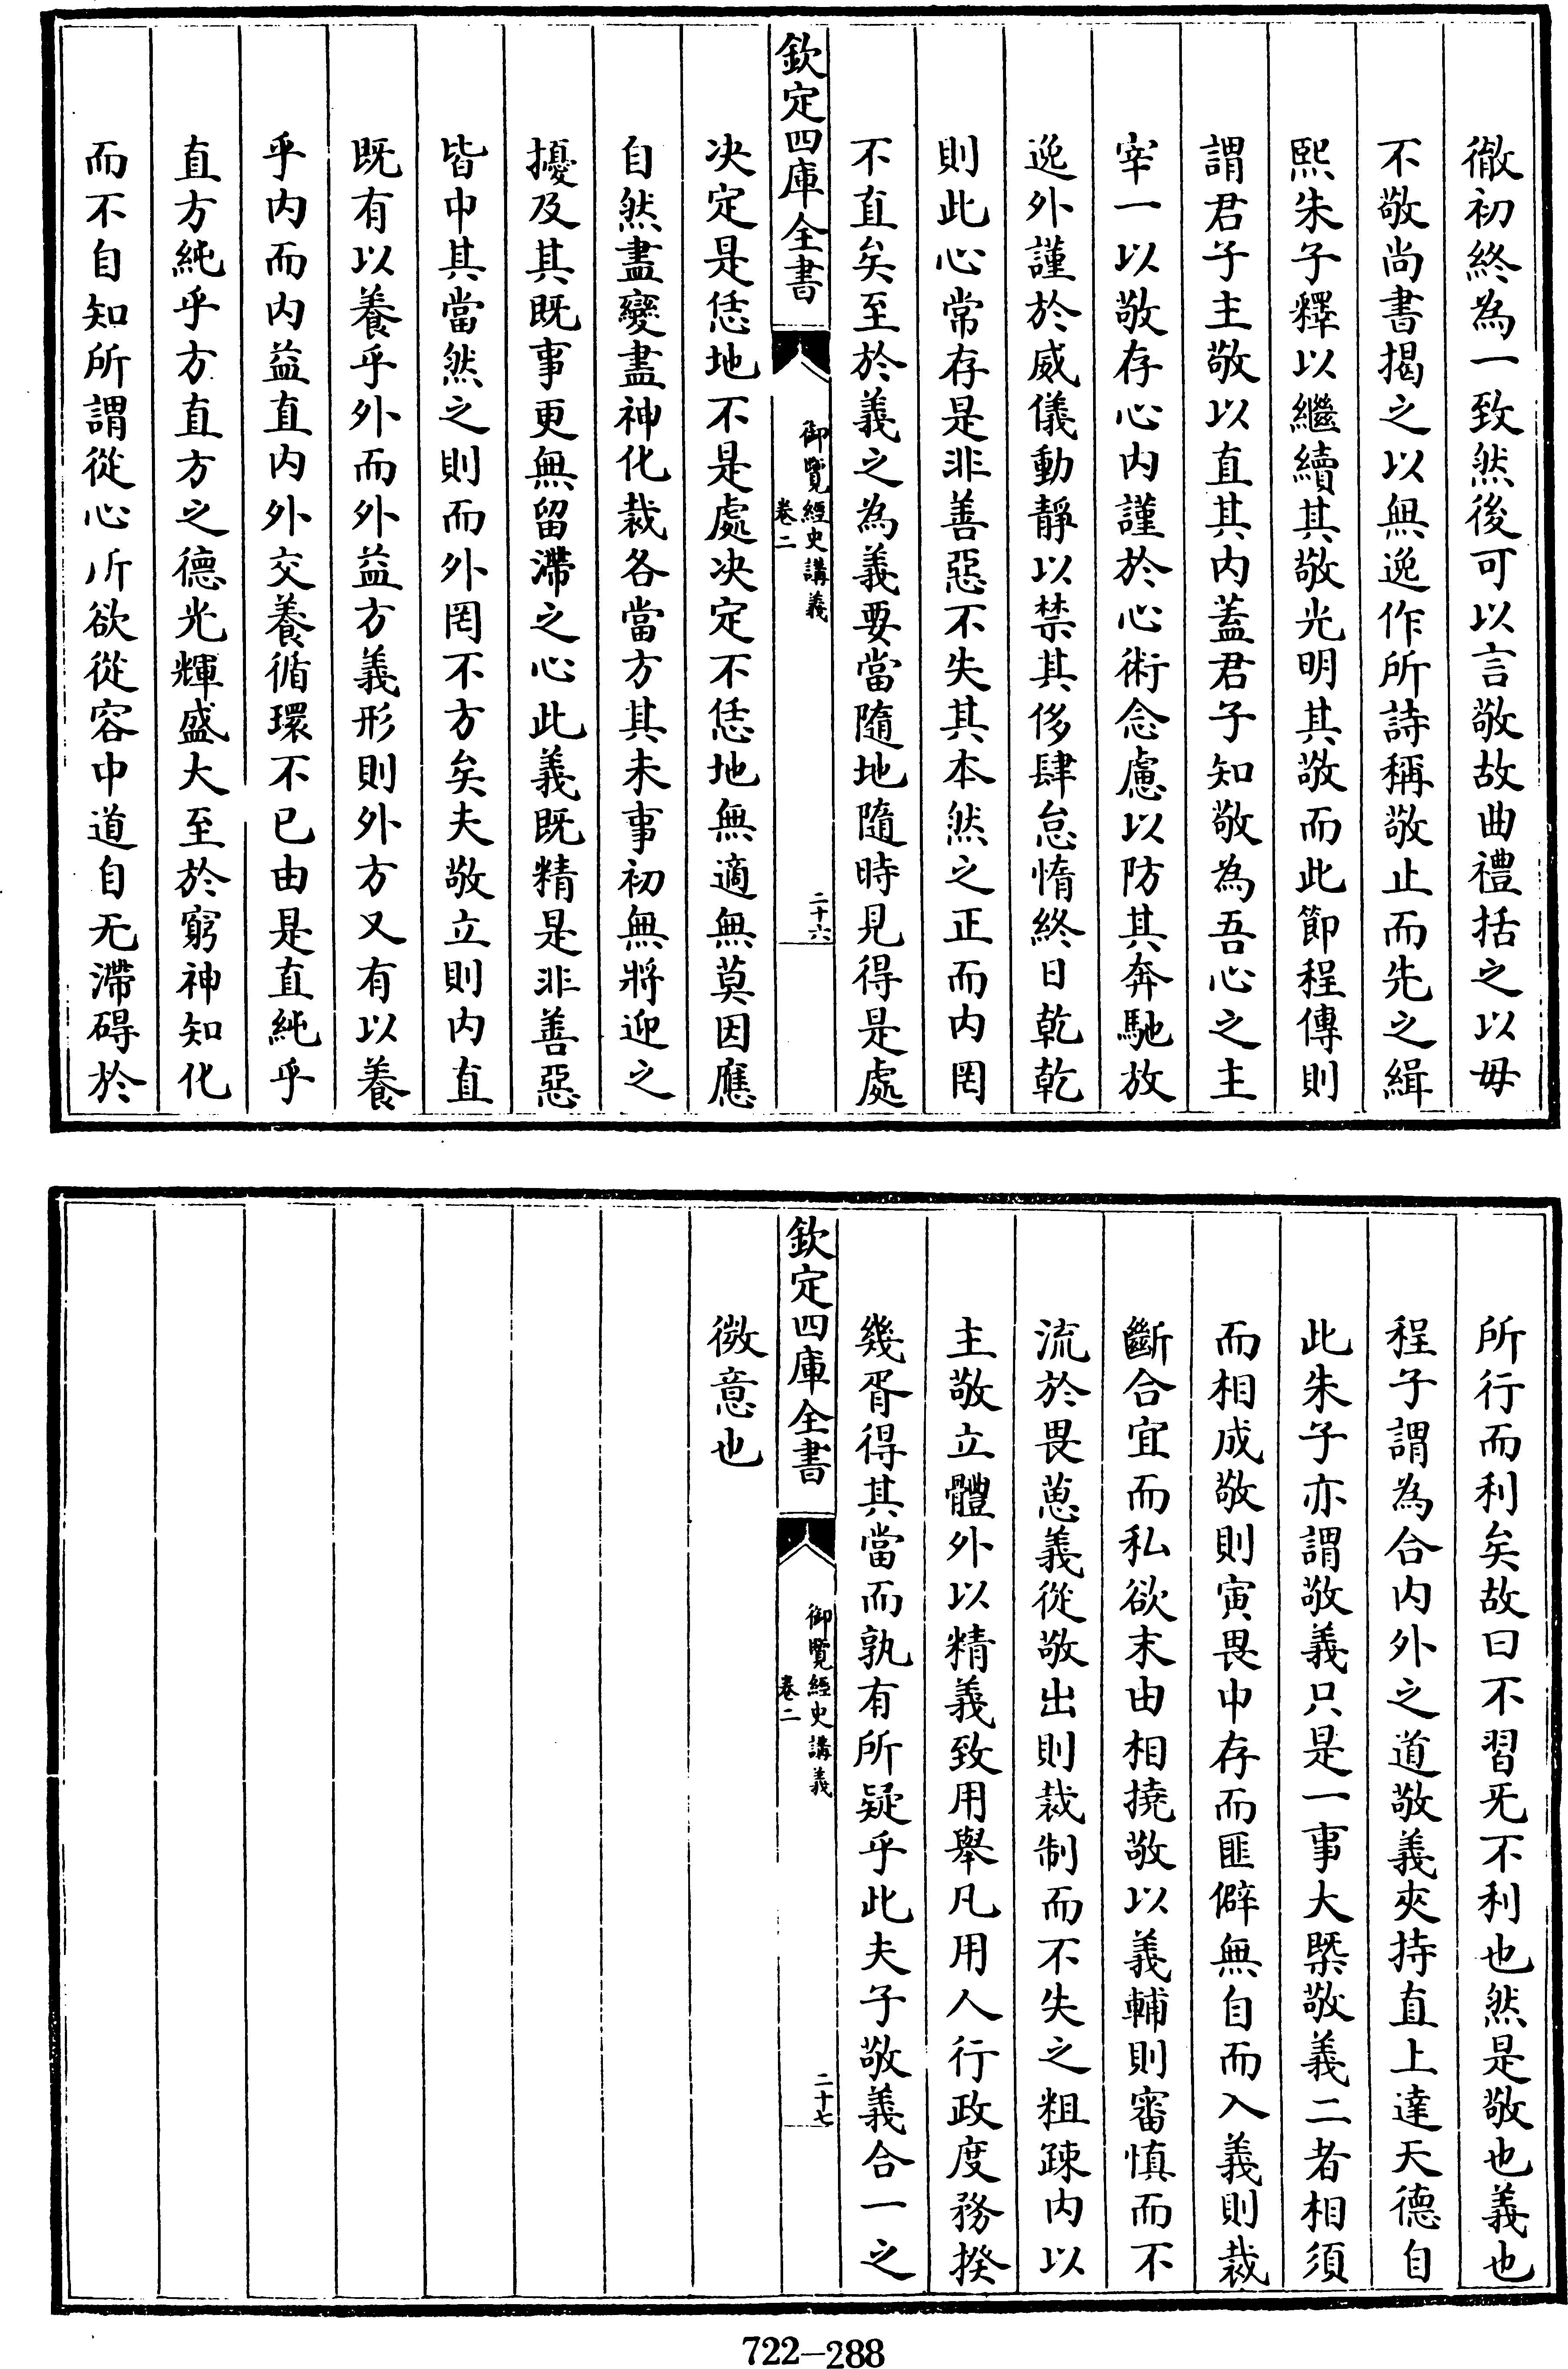 徹初終為一致然後可以言敬故曲禮括之以毋
不敬尚書揭之以無逸作所詩稱敬止而先之緝
熙朱子釋以繼續其敬光明其敬而此節程傳則
謂君子主敬以直其內蓋君子知敬為吾心之主
宰一以敬存心內謹於心術念慮以防其奔馳放
逸外謹於威儀動靜以禁其侈肆怠惰終日乾乾
則此心常存是非善惡不失其本然之正而內罔
不直矣至於義之為義要當隨地隨時見得是處
欽定四庫全書
御覽經史講義
卷二
二十六
决定是恁地不是處决定不恁地無適無莫因應
自然盡變盡神化裁各當方其未事初無將迎之
擾及其既事更無留滯之心此義既精是非善惡
皆中其當然之則而外罔不方矣夫敬立則內直
既有以養乎外而外益方義形則外方又有以養
乎內而內益直內外交養循環不已由是直純乎
直方純乎方直方之德光輝盛大至於窮神知化
而不自知所謂從心所欲從容中道自无滯碍於
所行而利矣故曰不習无不利也然是敬也義也
程子謂為合內外之道敬義夾持直上達天德自
此朱子亦謂敬義只是一事大槩敬義二者相須
而相成敬則寅畏中存而匪僻無自而入義則裁
斷合宜而私欲末由相撓敬以義輔則審慎而不
流於畏葸義從敬出則裁制而不失之粗疎內以
主敬立體外以精義致用舉凡用人行政度務揆
幾胥得其當而孰有所疑乎此夫子敬義合一之
欽定四庫全書
御覽經史講義
卷二
二十七
微意也
722—288